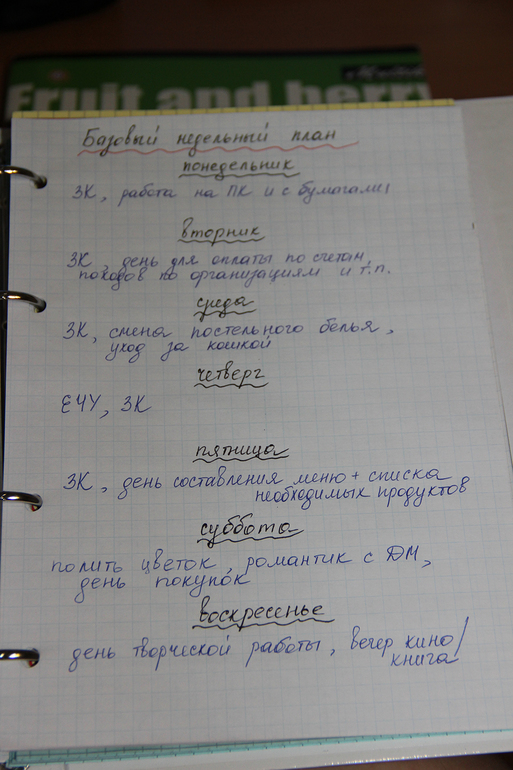 Fruit and berry
Базовый недельный план
понедельник
ЗК, работа на ПК и с бумагами
вторник
ЗК, день для оплаты по счетам,
походов по организациям и т.п.
среда
ЗК, смена постельного белья,
уход за кошкой
четверг
ЕЧУ, ЗК
пятница
ЗК, день составления меню + списка
необходимых продуктов
суббота
полить цветок, романтик с ДМ,
день покупок
воскресенье
день творческой работы, вечер кино/
книга